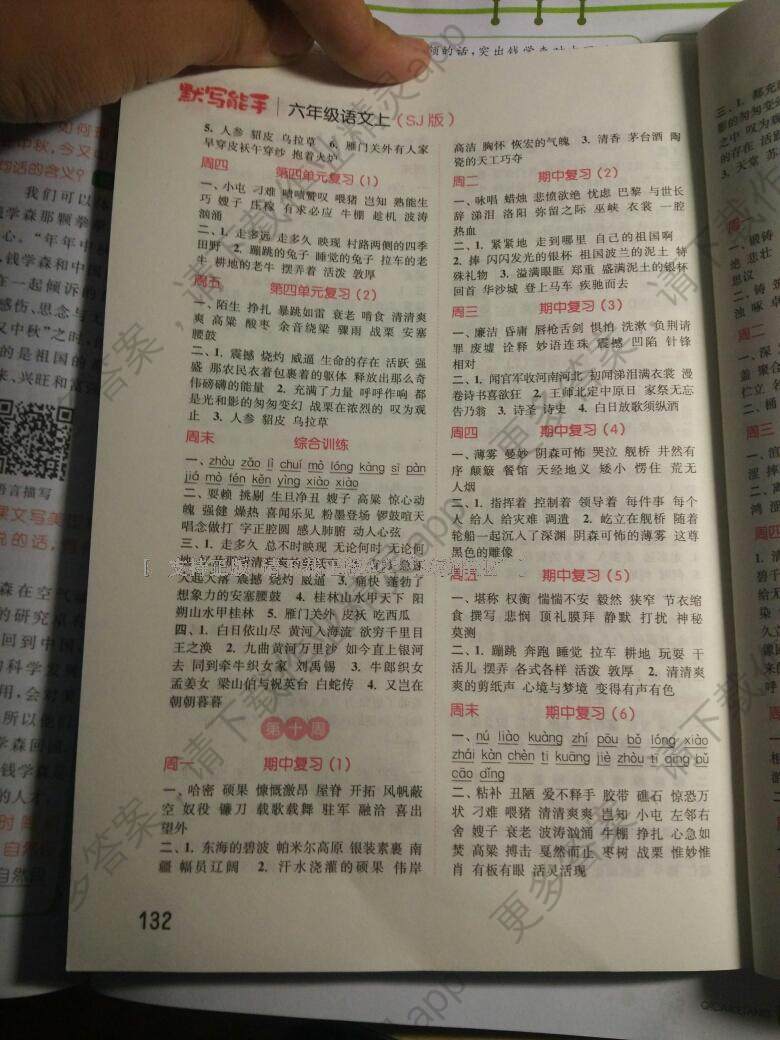 默写能手 六年级语文上（SJ版）
5. 人参 貂皮 乌拉草 6. 雁门关外有人家
早穿皮袄午穿纱 抱着火炉
周四 第四单元复习（1）
一、小屯 刁难 啧啧赞叹 喂猪 岂知 熟能生
巧 嫂子 庄稼 有求必应 牛棚 趁机 波涛
汹涌
二、1. 走多远 走多久 映现 村路两侧的四季
田野 2. 蹦跳的兔子 睡觉的兔子 拉车的老
牛 耕地的老牛 摆弄着 活泼 敦厚
周五 第四单元复习（2）
一、陌生 挣扎 暴跳如雷 衰老 啃食 清清爽
爽 高粱 酸枣 余音绕梁 骤雨 战栗 安塞
腰鼓
二、1. 震撼 烧灼 威逼 生命的存在 活跃 强
盛 那农民衣着包裹着的躯体 释放出那么奇
伟磅礴的能量 2. 充满了力量 呼呼作响 都
是光和影的匆匆变幻 战栗在浓烈的 叹为观
止 3. 人参 貂皮 乌拉草
周末 综合训练
一、zhòu zǎo lì chuí mò lóng kàng sī pàn
jiá mò tén kěn yíng xiào xiào
二、耍赖 挑剔 生旦净丑 嫂子 高粱 惊心动
魄 强健 燥热 喜闻乐见 粉墨登场 锣鼓喧天
唱念做打 字正腔圆 感人肺腑 动人心弦
三、1. 走多久 总不时映现 无论何时 无论何
大起大落 震撼 烧灼 威逼 3. 痛快 蓬勃了
想象力的安塞腰鼓 4. 桂林山水甲天下 阳
朔山水甲桂林 5. 雁门关外 皮袄 吃西瓜
四、1. 白日依山尽 黄河入海流 欲穷千里目
王之涣 2. 九曲黄河万里沙 如今直上银河
去 同到牵牛织女家 刘禹锡 3. 牛郎织女
孟姜女 梁山伯与祝英台 白蛇传 4. 又岂在
朝朝暮暮
第十周
周一 期中复习（1）
一、哈密 硕果 慷慨激昂 屋脊 开拓 风帆蔽
空 奴役 镰刀 载歌载舞 驻军 融洽 喜出
望外
二、1. 东海的碧波 帕米尔高原 银装素裹 南
疆 幅员辽阔 2. 汗水浇灌的硕果 伟岸
132
高洁 胸怀 恢宏的气魄 3. 清香 茅台酒 陶
瓷的天工巧夺
周二 期中复习（2）
一、咏唱 蜡烛 悲愤欲绝 忧虑 巴黎 与世长
辞 涕泪 洛阳 弥留之际 巫峡 衣裳 一腔
热血
二、1. 紧紧地 走到哪里 自己的祖国啊
2. 捧 闪闪发光的银杯 祖国波兰的泥土 特
殊礼物 3. 溢满眼眶 郑重 盛满泥土的银杯
回首 华沙城 登上马车 疾驰而去
周三 期中复习（3）
一、廉洁 昏庸 唇枪舌剑 惧怕 洗漱 负荆请
罪 废墟 诠释 妙语连珠 震撼 凹陷 针锋
相对
二、1. 闻官军收河南河北 初闻涕泪满衣裳 漫
卷诗书喜欲狂 2. 王师北定中原日 家祭无忘
告乃翁 3. 诗圣 诗史 4. 白日放歌须纵酒
周四 期中复习（4）
一、薄雾 曼妙 阴森可怖 哭泣 舰桥 井然有
序 颠簸 餐馆 天经地义 矮小 愣住 荒无
人烟
二、1. 指挥着 控制着 领导着 每件事 每个
人 给人 给灾难 调遣 2. 屹立在舰桥 随着
轮船一起沉入了深渊 阴森可怖的薄雾 这尊
黑色的雕像
周五 期中复习（5）
一、堪称 权衡 惴惴不安 毅然 狭窄 节衣缩
食 撰写 悲悯 顶礼膜拜 静默 打扰 神秘
莫测
二、1. 蹦跳 奔跑 睡觉 拉车 耕地 玩耍 干
活儿 摆弄 各式各样 活泼 敦厚 2. 清清爽
爽的剪纸声 心境与梦境 变得有声有色
周末 期中复习（6）
一、nú liào kuàng zhí pōu bǒ lóng xiào
zhǎi kàn chèn tì kuàng jiè zhòu tì qìng bǔ
cāo dǐng
二、粘补 丑陋 爱不释手 胶带 礁石 惊恐万
状 刁难 喂猪 清清爽爽 岂知 小屯 左邻右
舍 嫂子 衰老 波涛汹涌 牛棚 挣扎 心急如
焚 高粱 搏击 戛然而止 枣树 战栗 惟妙惟
肖 有板有眼 活灵活现